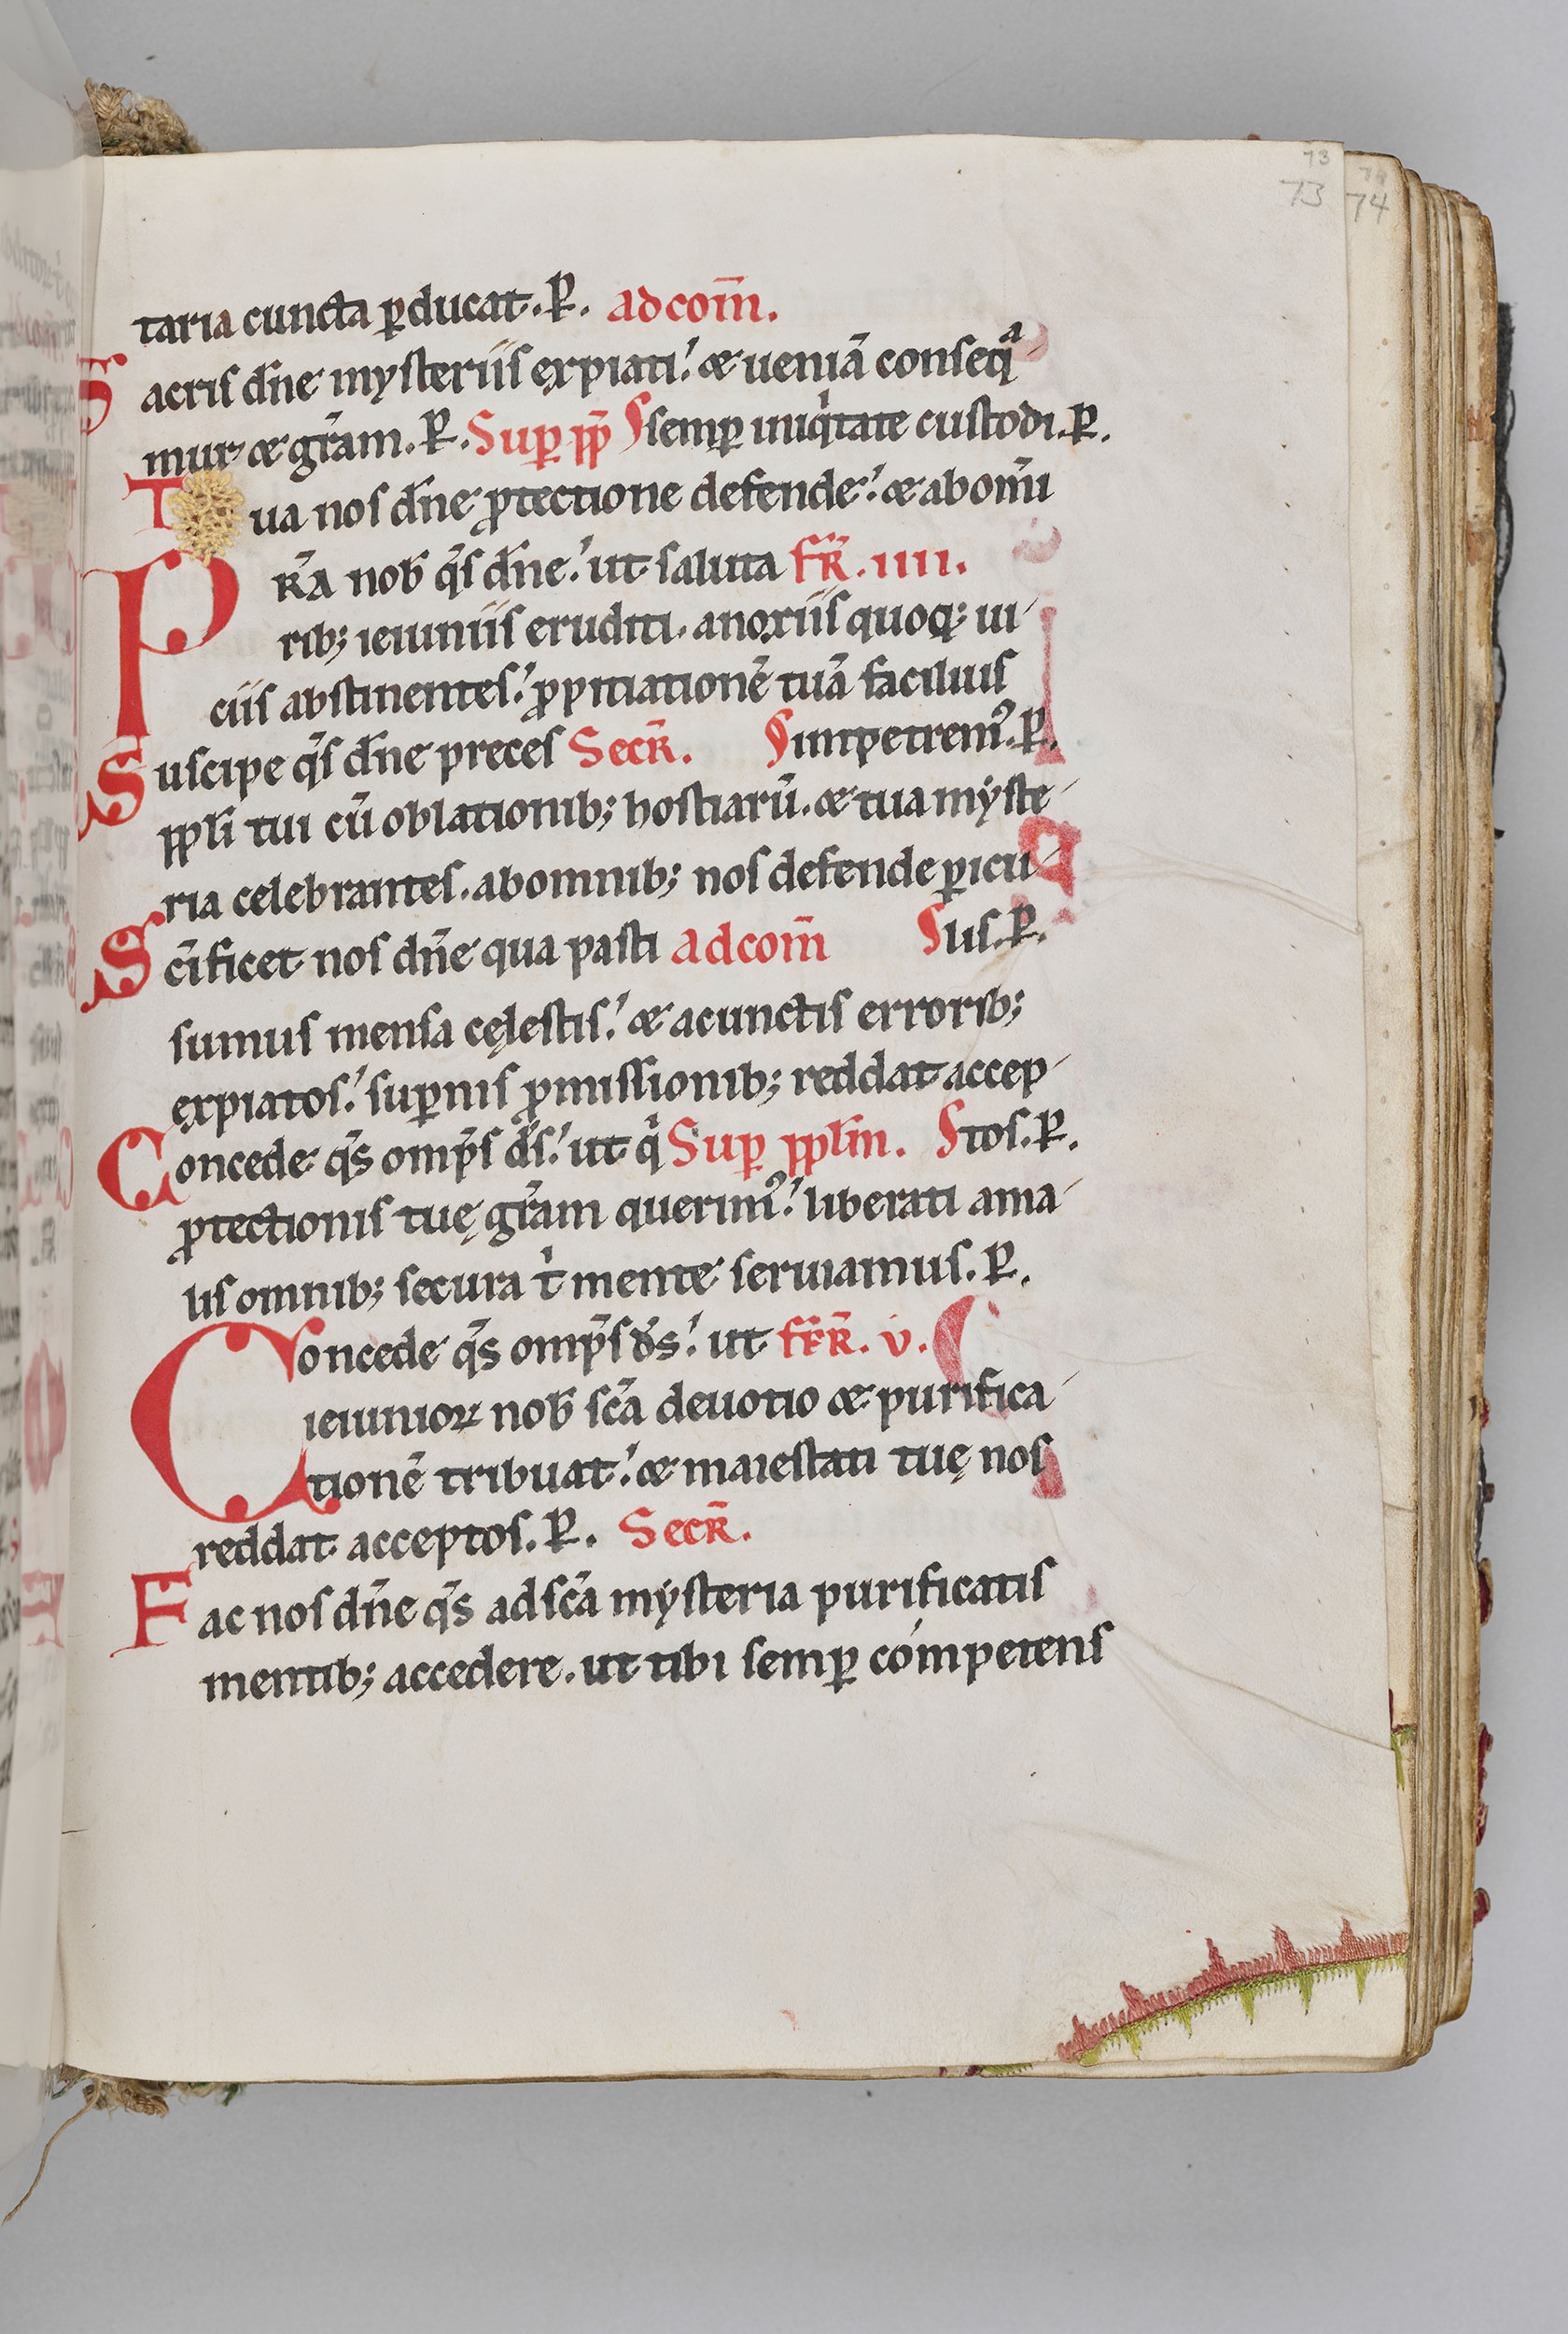 73
73 74
taria cuncta ꝑducat. P̶. ad com̄.
Sacris dn̄e mysteriis expiati. & ueniā conseqͣ
mur & gr̄am. P̶. Suꝑ pp̄ semꝑ iniqͥtate custodi. P̶.
Tua nos dn̄e ꝓtectione defende. & ab om̄i
PR̄A nob̄ qs̄ dn̄e. ut saluta fR̄. IIII.
rib; ieiuniis eruditi. a noxiis quoq; ui
ciis abstinentes. ꝓpitiationē tuā facilius
Suscipe qs̄ dn̄e preces SecR̄. impetrem᾽. P̶.
ppl̄i tui cū oblationib; hostiarū. & tua myste
ria celebrantes. ab omnib; nos defende ꝑicu
Sc̄ificet nos dn̄e qua pasti ad com̄ lis. P̶.
sumus mensa cęlestis. & a cunctis errorib;
expiatos. suꝑnis ꝓmissionib; reddat accep
Concede qs̄ omp̄s ds̄. ut qͥ Suꝑ ppl̄m. tos. P̶.
ꝓtectionis tuę gr̄am querim᾽. liberati a ma
lis omnib; secura tͥ mente seruiamus. P̶.
Concede qs̄ omp̄s ds̄. ut fR̄. v.
ieiunioꝝ nob̄ sc̄a deuotio & purifica
tionē tribuat. & maiestati tuę nos
reddat acceptos. P̶. SecR̄.
Fac nos dn̄e qs̄ ad sc̄a mysteria purificatis
mentib; accedere. ut tibi semꝑ competens